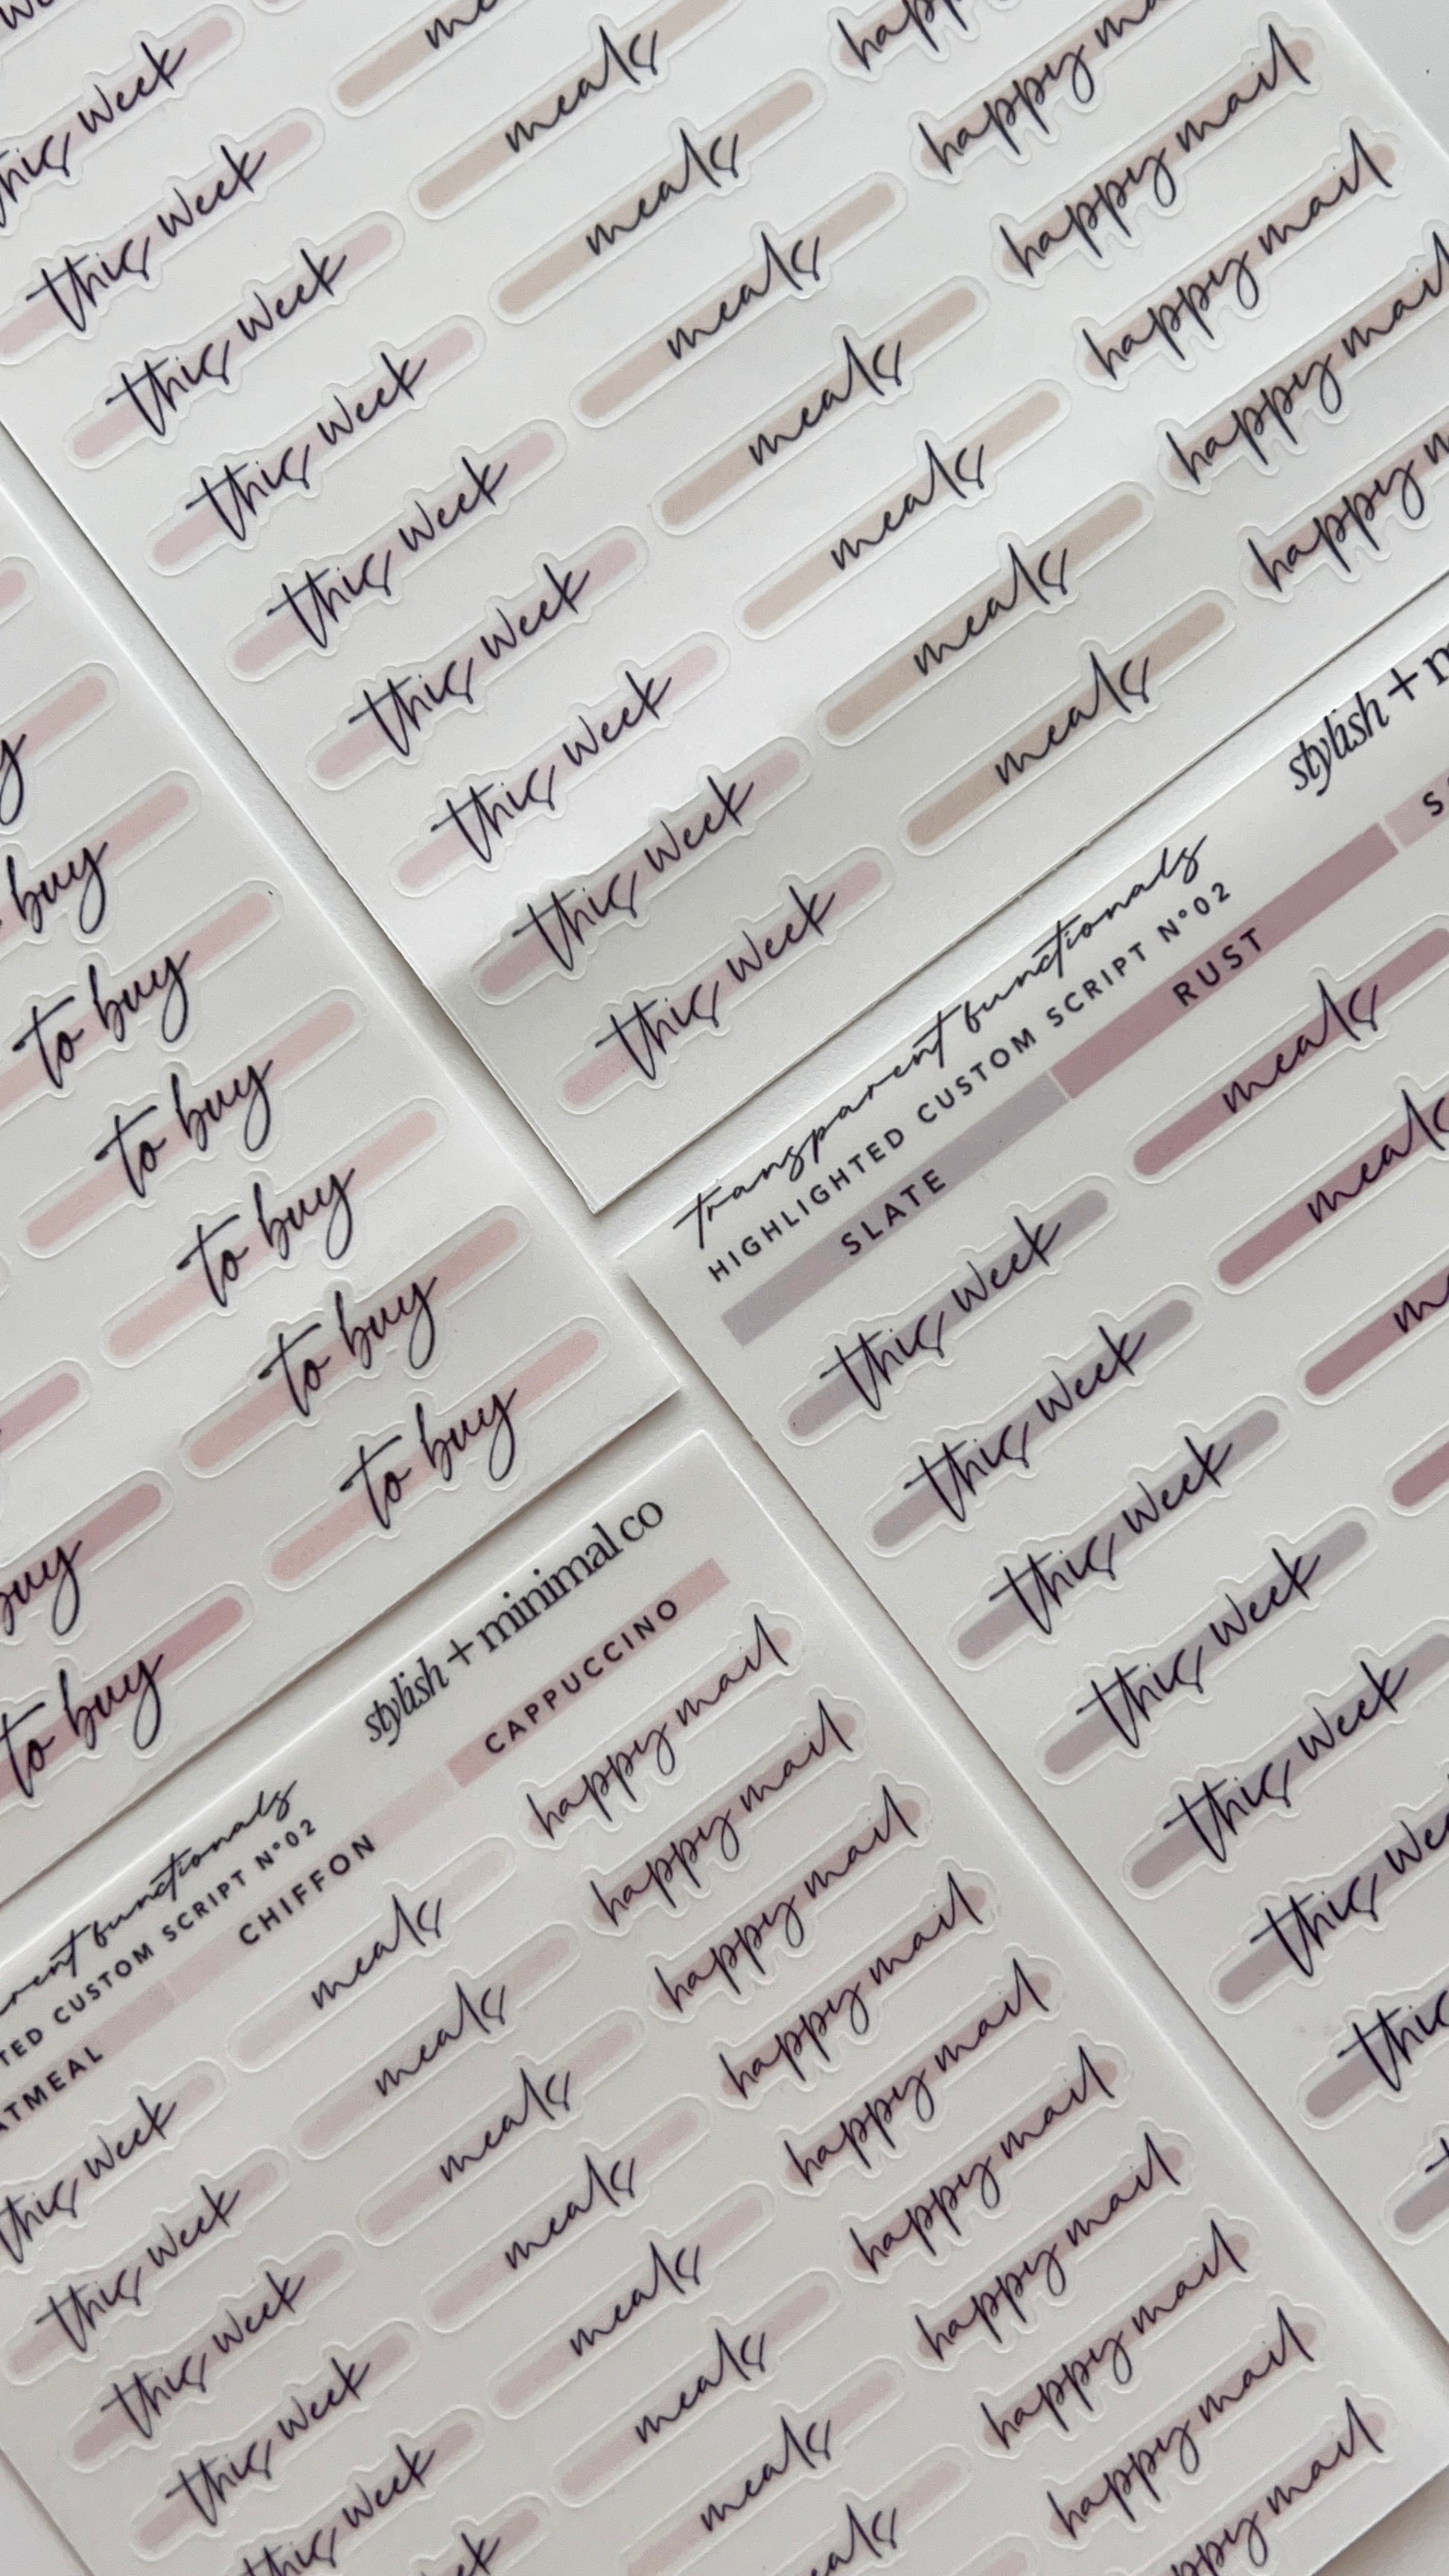 this week
this week
this week
this week
this week
this week
this week
this week
this week
meals
meals
meals
meals
meals
meals
meals
happy
happy ma
happy mail
happy mail
happy mail
happy m
buy
to buy
to buy
to buy
to buy
to buy
buy
to buy
stylish + m
transparent functionals
HIGHLIGHTED CUSTOM SCRIPT N°02
SLATE RUST S
this week
this week
this week
this week
this week
this wee
this
meals
meals
m
stylish + minimal co
rent functionals
TED CUSTOM SCRIPT N°02
ATMEAL CHIFFON CAPPUCCINO
this week
this week
this week
this week
this week
meals
meals
meals
meals
meals
meals
meals
eals
happy mail
happy mail
happy mail
happy mail
happy mail
happy mail
happy mail
happy mail
happy mail
ppy mail